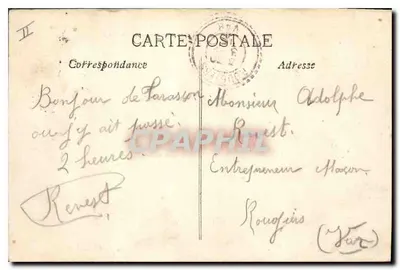 II
CARTE POSTALE
Correspondance
Adresse
Bonjour de Tarascon
ou j'y ait passé
2 heures.
Revest
Monsieur Adolphe
Revest.
Entrepreneur Maçon
Rougiers
(Var)
CPAPHIL